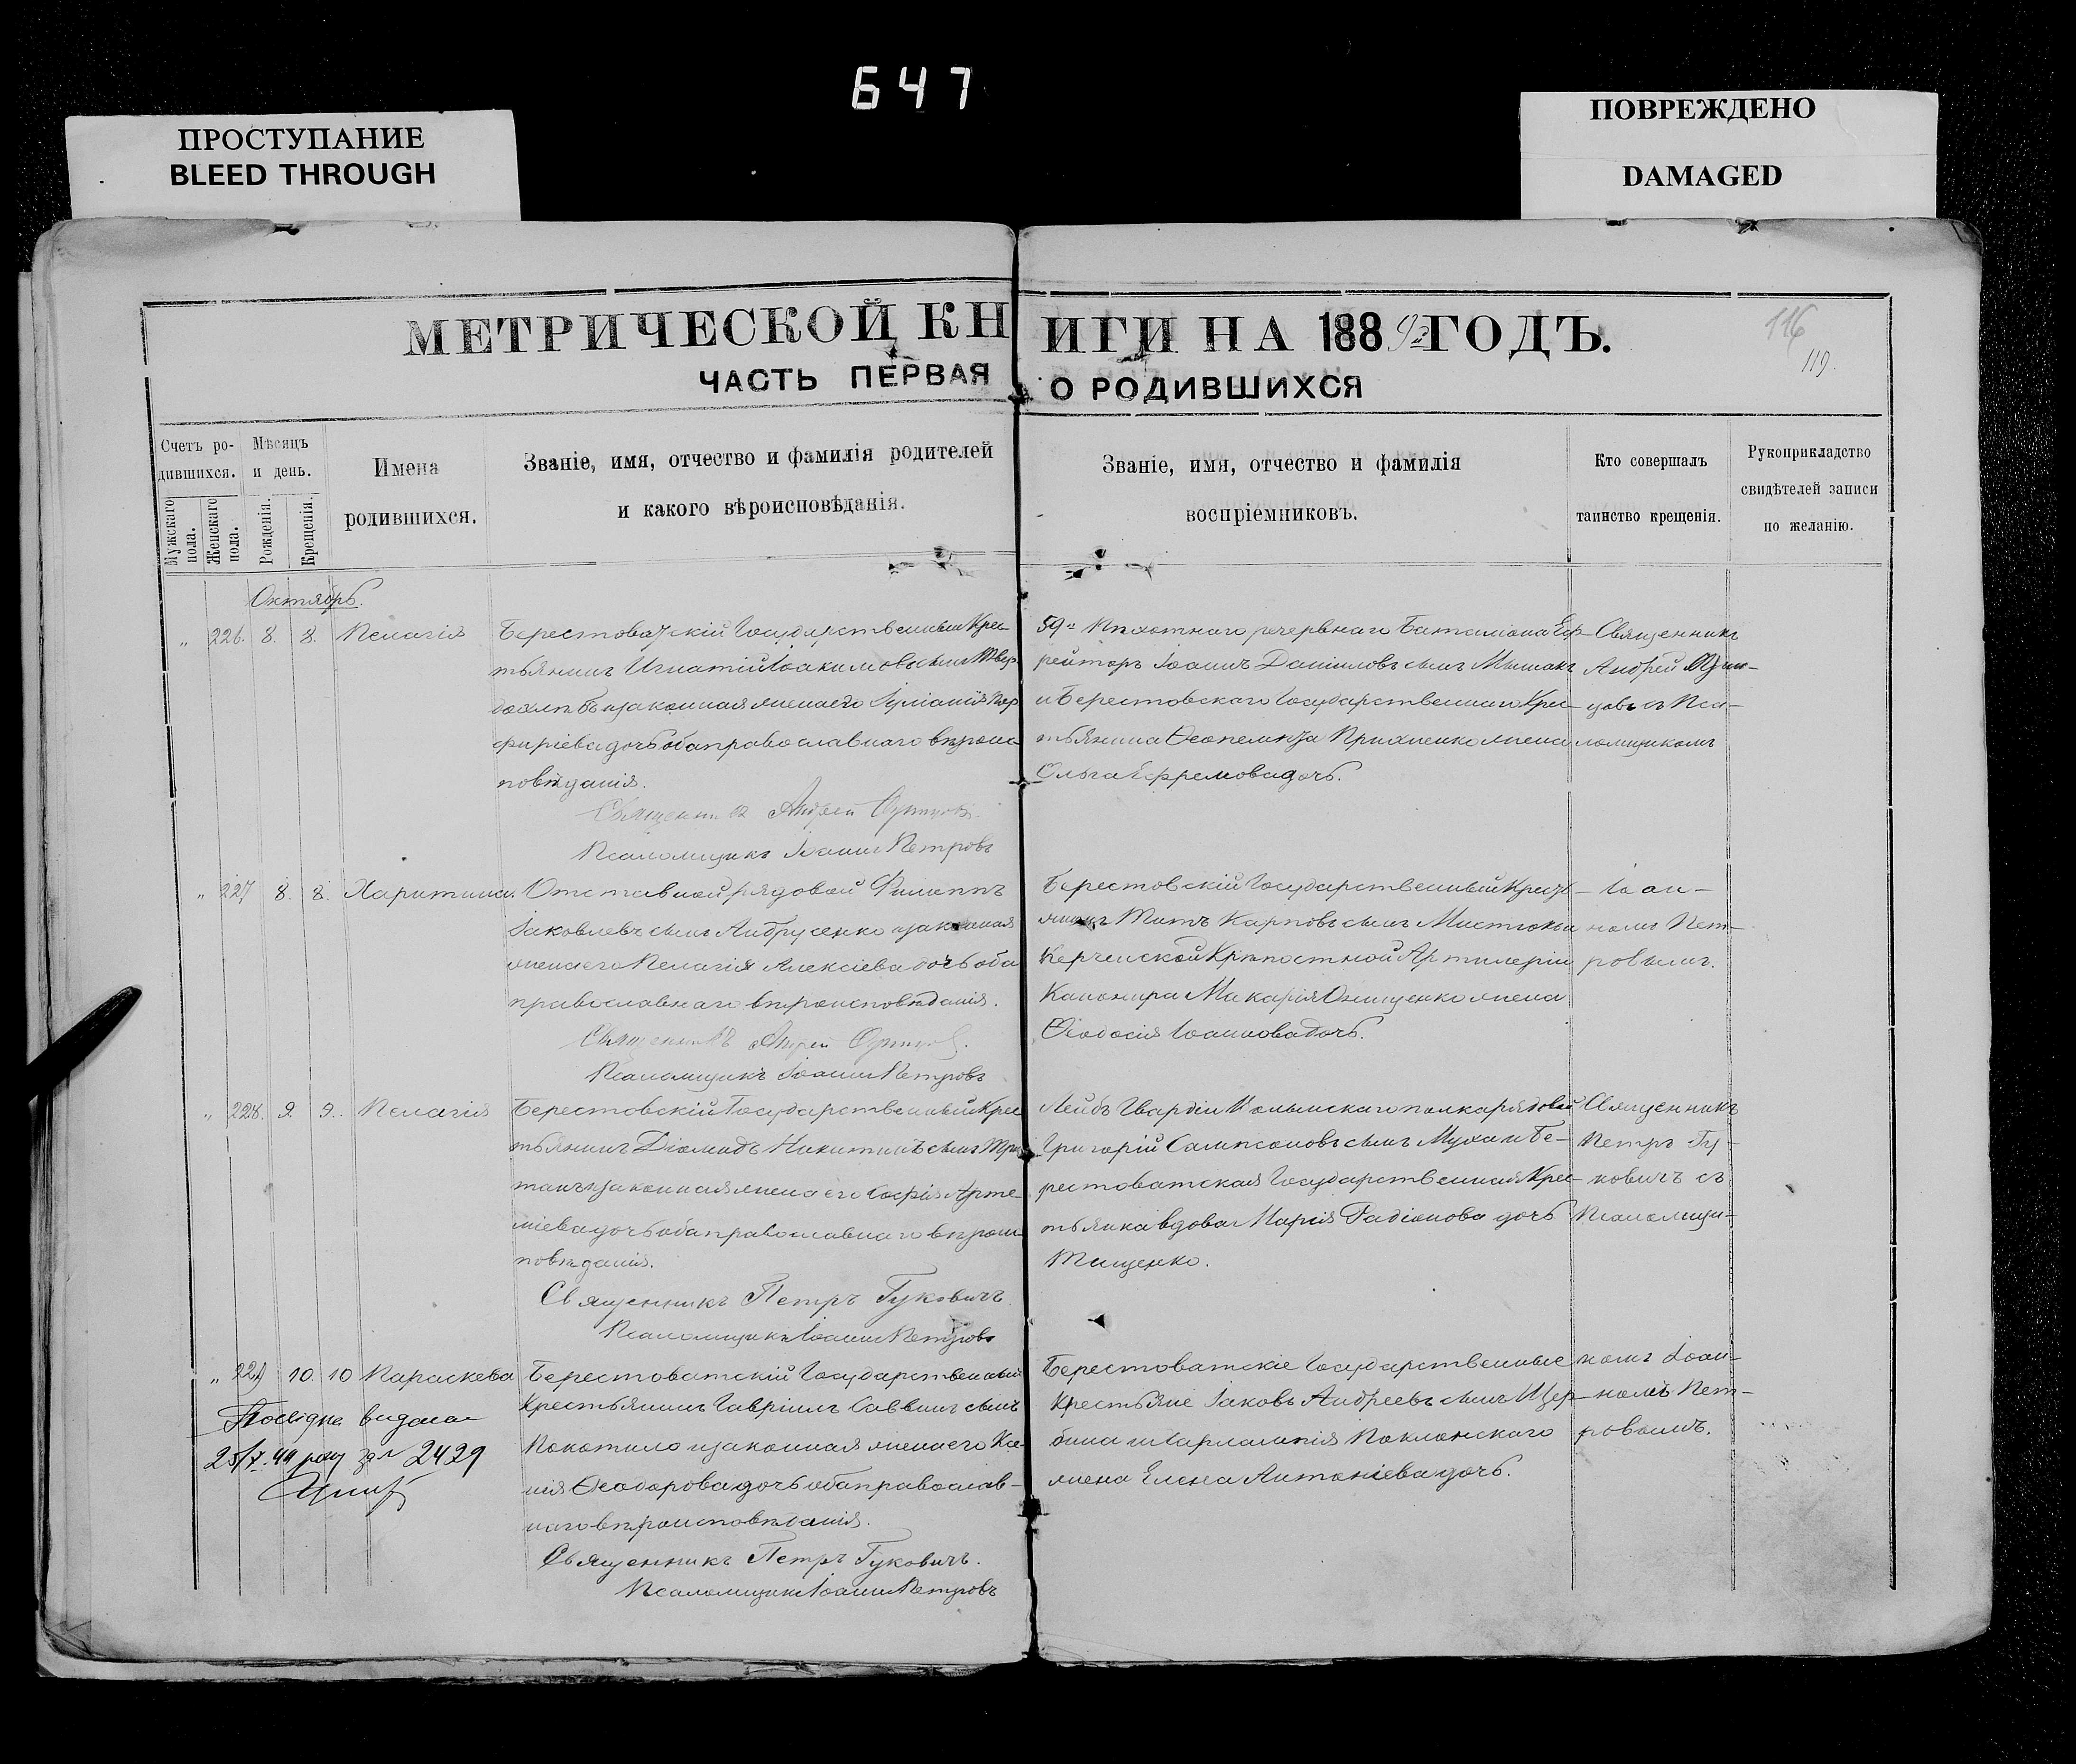 647
ПРОСТУПАНИЕ
BLEED THROUGH
ПОВРЕЖДЕНО
DAMAGED
МЕТРИЧЕСКОЙ КНИГИ НА 1889 ГОДЪ.
116
119.
ЧАСТЬ ПЕРВАЯ О РОДИВШИХСЯ
Счетъ ро-
дившихся.
Мужскаго пола.
Женскаго пола.
Мѣсяцъ
и день.
Рожденія.
Крещенія.
Имена
родившихся.
Званіе, имя, отчество и фамилія родителей
и какого вѣроисповѣданія.
Званіе, имя, отчество и фамилія
воспріемниковъ.
Кто совершалъ
таинство крещенія.
Рукоприкладство
свидѣтелей записи
по желанію.
Октябрь.
„ 226. 8. 8. Пелагія
Берестоватскій Государственный Крес-
тьянинъ Игнатій Іакимовъ сынъ Твер-
дохлѣбъ и законная жена его Іуліанія Пор
фиріева дочь оба православнаго вѣроис
повѣданія.
Священникъ Андрей
Псаломщикъ Іоаннъ Петровъ
59го Пѣхотнаго резервнаго Баталіона Еф-
рейторъ Іоаннъ Даніиловъ сынъ
и Берестовскаго Государственнаго Крес-
тьянина Феопемпта Прихненко жена
Ольга Ефремова дочь.
Священникъ
Андрей
цовъ съ Пса-
ломщикомъ
„ 227 8. 8. Харитина.
Отставной рядовой Филиппъ
Іаковлевъ сынъ Андрусенко и законная
жена его Пелагія Алексіева дочь оба
православнаго вѣроисповѣданія.
Священникъ Андрей
Псаломщикъ Іоаннъ Петровъ
Берестовскій Государственный Кресть-
янинъ Титъ Карповъ сынъ
Керченской Крѣпостной Артилеріи
Канонира Макарія Онищенко жена
Ѳеодосія Іоаннова дочь.
Іоан-
номъ Пет-
ровымъ.
„ 228. 9. 9. Пелагія
Берестовскій Государственный Крес
тьянинъ Діомидъ Никитинъ сынъ Три
танъ и законная жена его Софія Арте-
міева дочь оба православнаго вѣроис
повѣданія.
Священникъ Петръ Гуковичъ
Псаломщикъ Іоаннъ Петровъ
Лейбъ Гвардіи Волынскаго полка рядовой
Григорій Сампсоновъ сынъ Муха и Бе-
рестоватская Государственная Крес-
тьянка вдова Марія Радіонова дочь
Тищенко.
Священникъ
Петръ Гу-
ковичъ съ
Псаломщи-
„ 229 10. 10 Параскева
Берестоватскій Государственный
Крестьянинъ Гавріилъ Саввинъ сынъ
Покотило и законная жена его Ксе-
нія Ѳеодорова дочь оба православ-
наго вѣроисповѣданія.
Священникъ Петръ Гуковичъ.
Псаломщикъ Іоаннъ Петровъ
Берестоватскіе Государственные
Крестьяне Іаковъ Андреевъ сынъ Щер-
бина и Варлампія Поклонскаго
жена Елена Антоніева дочь.
комъ Іоан-
номъ Пет-
ровымъ.
видана
25/X.44 року за № 2429